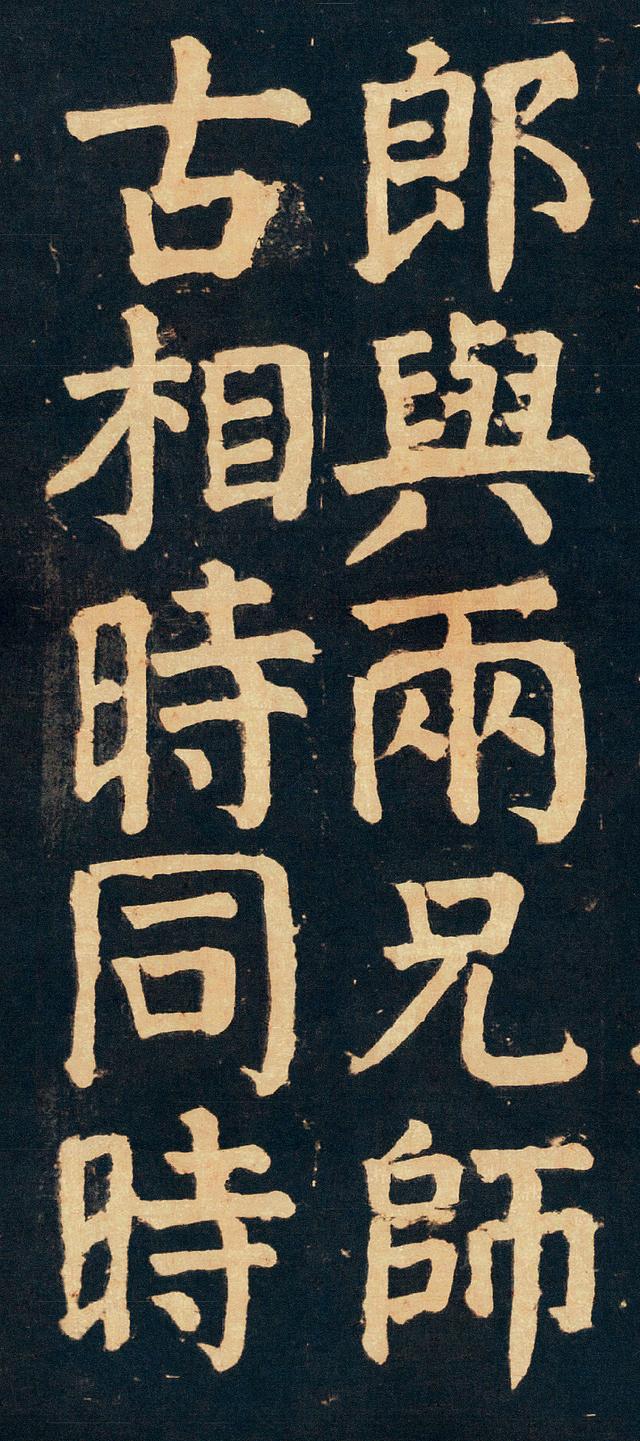 郎與兩兄師
古相時同時